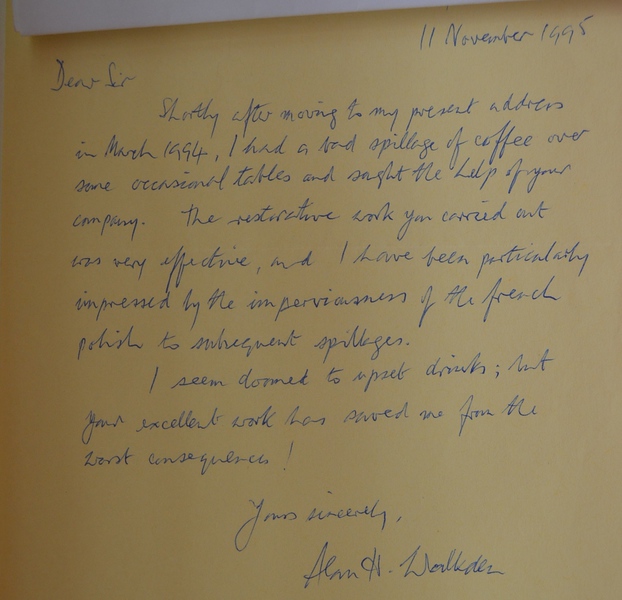 11 November 1995
Dear Sir
Shortly after moving to my present address
in March 1994, I had a bad spillage of coffee over
some occasional tables and sought the help of your
company. The restorative work you carried out
was very effective, and I have been particularly
impressed by the imperviousness of the french
polish to subsequent spillages.
I seem doomed to upset drinks; but
your excellent work has saved me from the
worst consequences!
Yours sincerely,
Alan H. Walkden